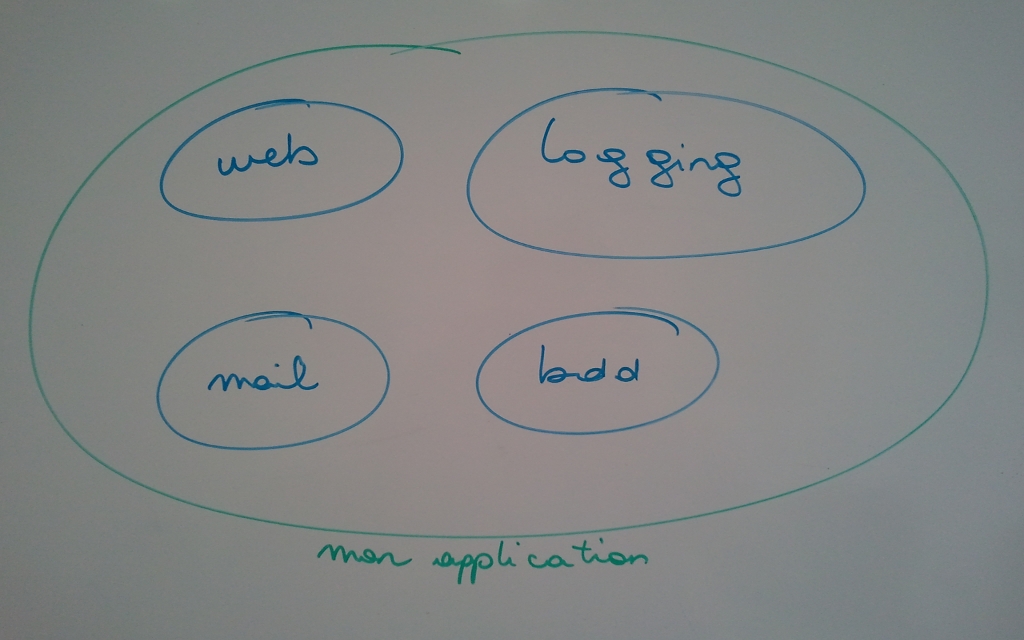 web
logging
mail
bdd
mon application